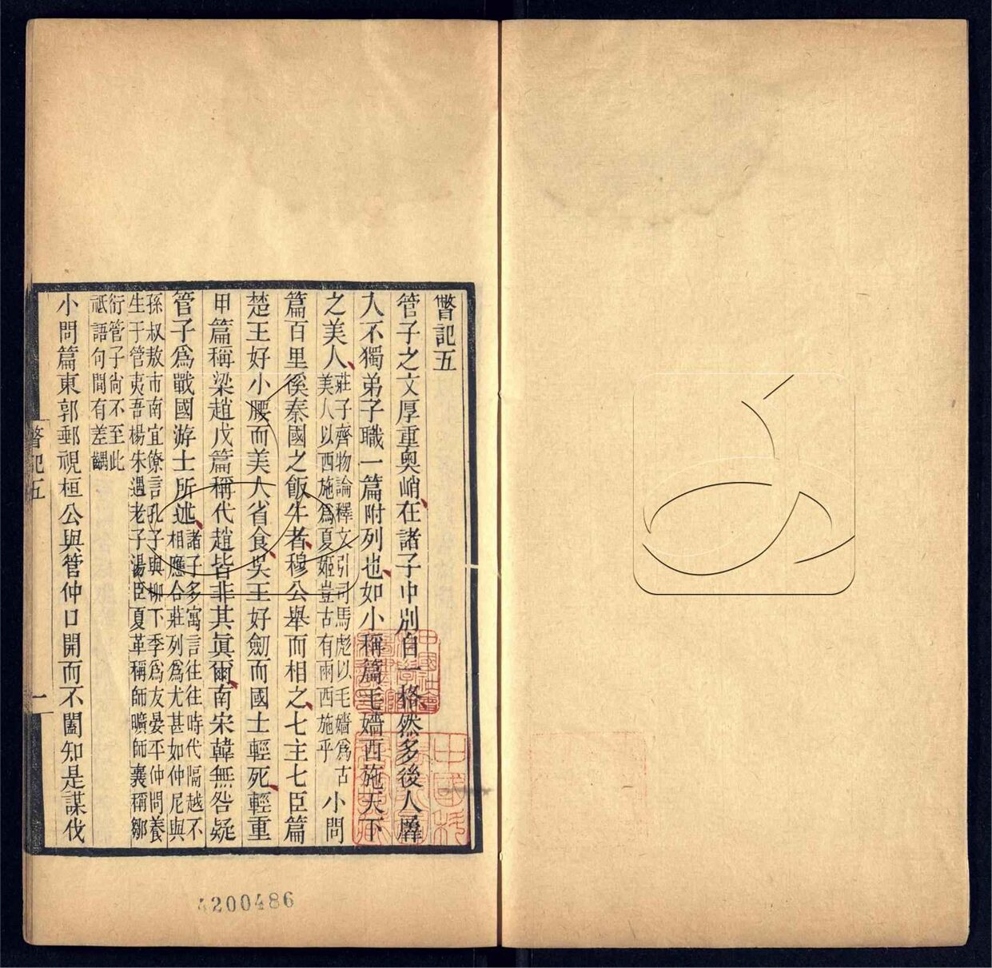 瞥記五
管子之文厚重奧峭在諸子中別自一格然多後人羼
入不獨弟子職一篇附列也如小稱篇毛嬙西施天下
之美人莊子齊物論釋文引司馬彪以毛嬙為古美人以西施為夏姬豈古有兩西施乎小問
篇百里徯秦國之飯牛者穆公舉而相之七主七臣篇
楚王好小腰而美人省食吳王好劒而國士輕死輕重
甲篇稱梁趙戊篇稱代趙皆非其眞爾南宋韓無咎疑
管子爲戰國游士所述諸子多寓言往往時代隔越不相應合莊列爲尤甚如仲尼與
孫叔敖市南宜僚言孔子與柳下季爲友晏平仲問養生于管夷吾楊朱遇老子湯臣夏革稱師曠師襄稱鄒
衍管子尙不至此祇語句間有差齵
小問篇東郭郵視桓公與管仲口開而不闔知是謀伐
瞥記五
一
4200486